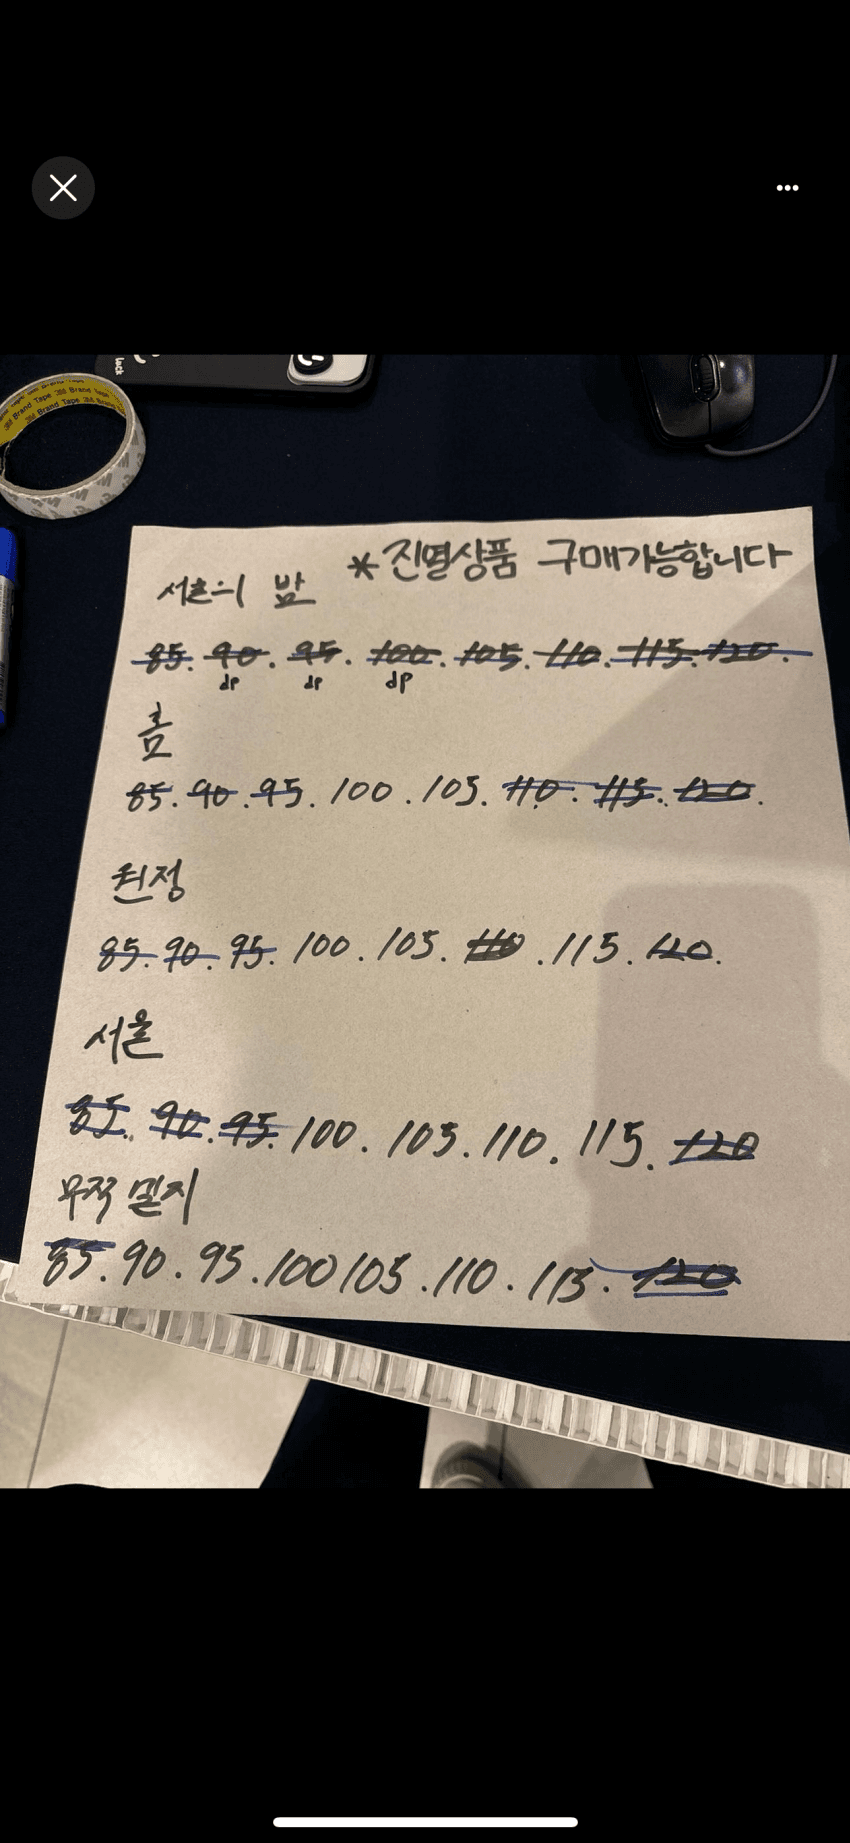 lock
3M Brand Tape 3M Brand Tape
3M Brand Tape
*진열상품 구매가능합니다
서울의 밤
85. 90. 95. 100. 105. 110. 115. 120.
dp dp dp
홈
85. 90. 95. 100. 105. 110. 115. 120.
원정
85. 90. 95. 100. 105. 110. 115. 120.
서울
85. 90. 95. 100. 105. 110. 115. 120
무적 밀지
85. 90. 95. 100 105. 110. 115. 120